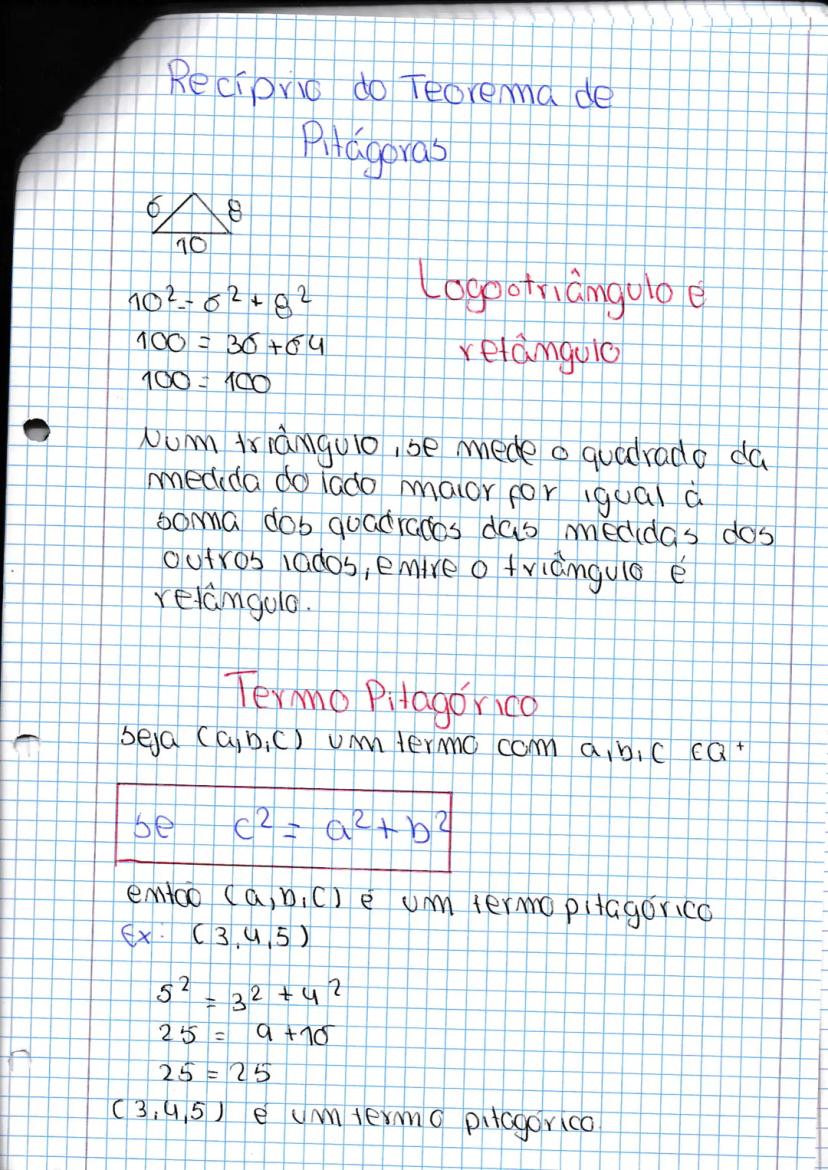 Recíprio do Teorema de
Pitágoras
6 8
10
10² = 6² + 8²
100 = 36 + 64
100 = 100
Logo o triângulo é
retângulo
Num triângulo, se mede o quadrado da
medida do lado maior for igual à
soma dos quadrados das medidas dos
outros lados, entre o triângulo é
retângulo.
Termo Pitagórico
seja (a,b,c) um termo com a,b,c
se c² = a² + b²
então (a,b,c) é um termo pitagórico
Ex: (3,4,5)
5² = 3² + 4²
25 = 9 + 16
25 = 25
(3,4,5) é um termo pitagórico.